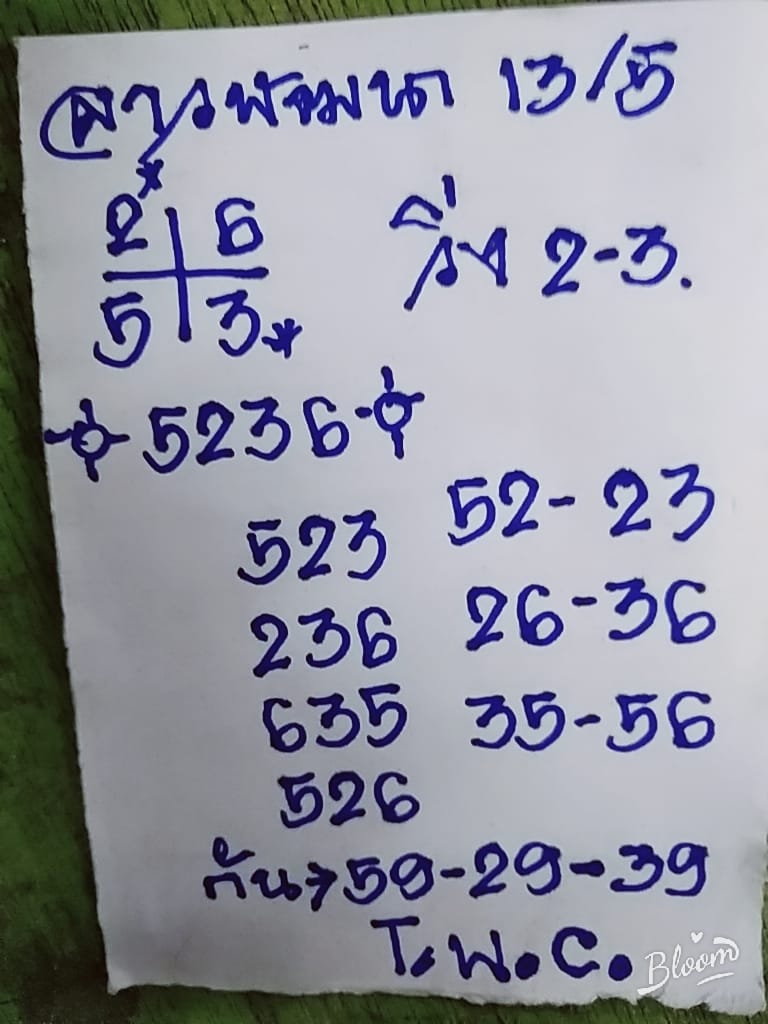 ลาวพัฒนา 13/5
2* 6
วิ่ง 2-3.
5 3*
5236
523 52-23
236 26-36
635 35-56
526
กัน→59-29-39
T.พ.C.
Bloom